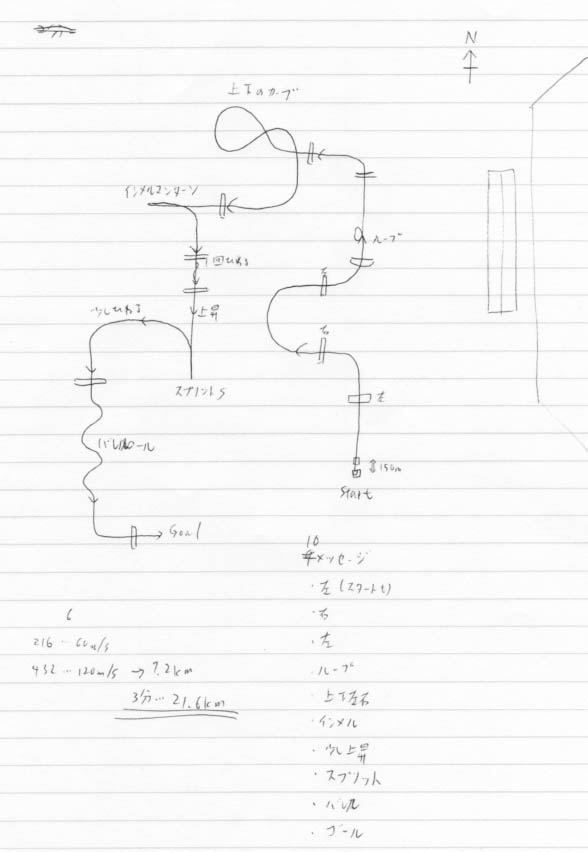 N
上下のカーブ
インメルマンターン
ループ
左
1回ひねる
右
上昇
少しひねる
スプリットS
左
バレルロール
150m
Start
Goal
10
メッセージ
・左(スタート)
・右
・左
・ループ
・上下左右
・インメル
・少し上昇
・スプリット
・バレル
・ゴール
6
216…60m/s
432…120m/s → 7.2km
3分…21.6km